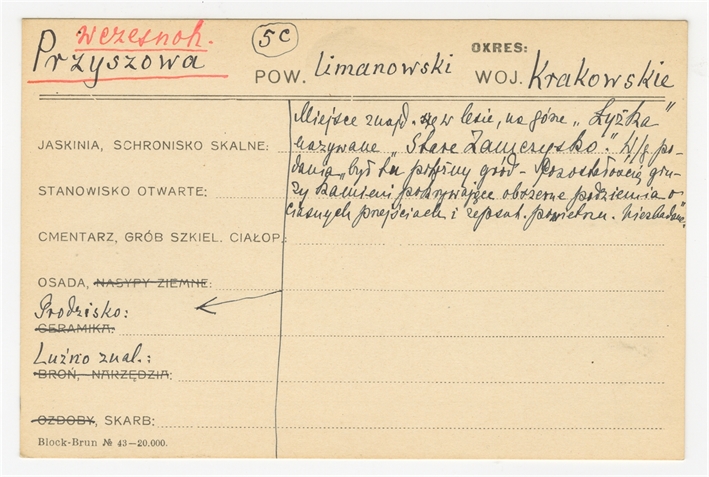 wczesnoh.
Przyszowa
5c
OKRES:
POW. limanowski WOJ. Krakowskie
Miejsce znajd. się w lesie, na górze "Łyżka"
nazywane "Stare Zamczysko". W/g po-
dania, był tu potężny gród - Pozostałością gru-
zy kamieni pokrywające obszerne podziemia o
ciasnych przejściach i zepsut. powietrzu. Niezbadane.
JASKINIA, SCHRONISKO SKALNE:
STANOWISKO OTWARTE:
CMENTARZ, GRÓB SZKIEL. CIAŁOP.:
OSADA, NASYPY ZIEMNE:
Grodzisko:
CERAMIKA:
Luźno znal.:
BROŃ, NARZĘDZIA:
OZDOBY, SKARB:
Block-Brun № 43—20.000.